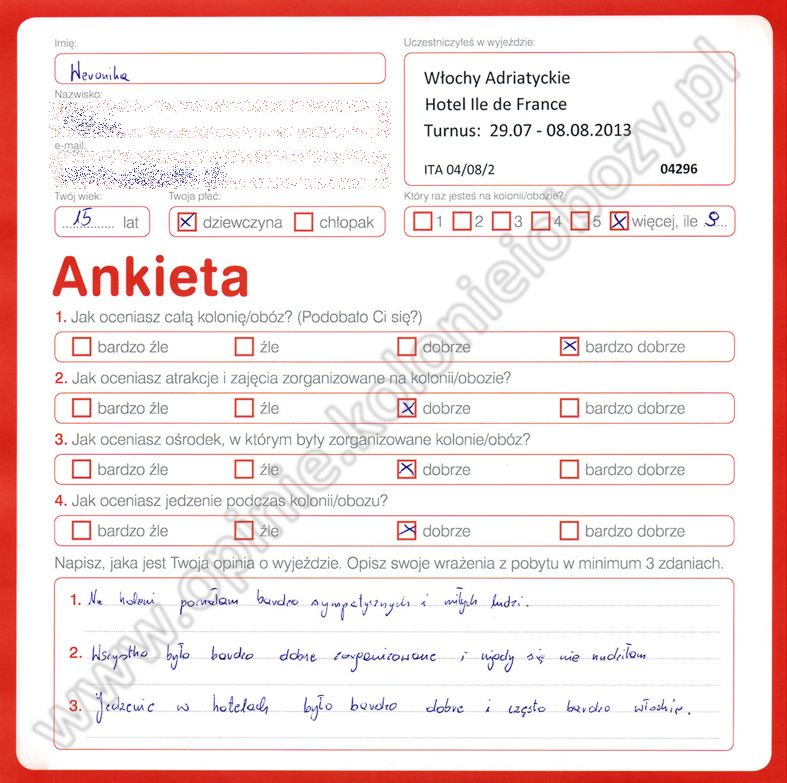 Imię:
Weronika
Uczestniczyłeś w wyjeździe:
Włochy Adriatyckie
Hotel Ile de France
Turnus: 29.07 - 08.08.2013
ITA 04/08/2 04296
Nazwisko:
e-mail:
Twój wiek: Twoja płeć: Który raz jesteś na kolonii/obozie?
15 lat dziewczyna chłopak 1 2 3 4 5 więcej, ile 9
Ankieta
1. Jak oceniasz całą kolonię/obóz? (Podobało Ci się?)
bardzo źle źle dobrze bardzo dobrze
2. Jak oceniasz atrakcje i zajęcia zorganizowane na kolonii/obozie?
bardzo źle źle dobrze bardzo dobrze
3. Jak oceniasz ośrodek, w którym były zorganizowane kolonie/obóz?
bardzo źle źle dobrze bardzo dobrze
4. Jak oceniasz jedzenie podczas kolonii/obozu?
bardzo źle źle dobrze bardzo dobrze
Napisz, jaka jest Twoja opinia o wyjeździe. Opisz swoje wrażenia z pobytu w minimum 3 zdaniach.
1. Na koloni poznałam bardzo sympatycznych i miłych ludzi.
2. Wszystko było bardzo dobrze zorganizowane i nigdy się nie nudziłam
3. Jedzenie w hotelach było bardzo dobre i często bardzo włoskie.
www.opinie.kolonieiobozy.pl